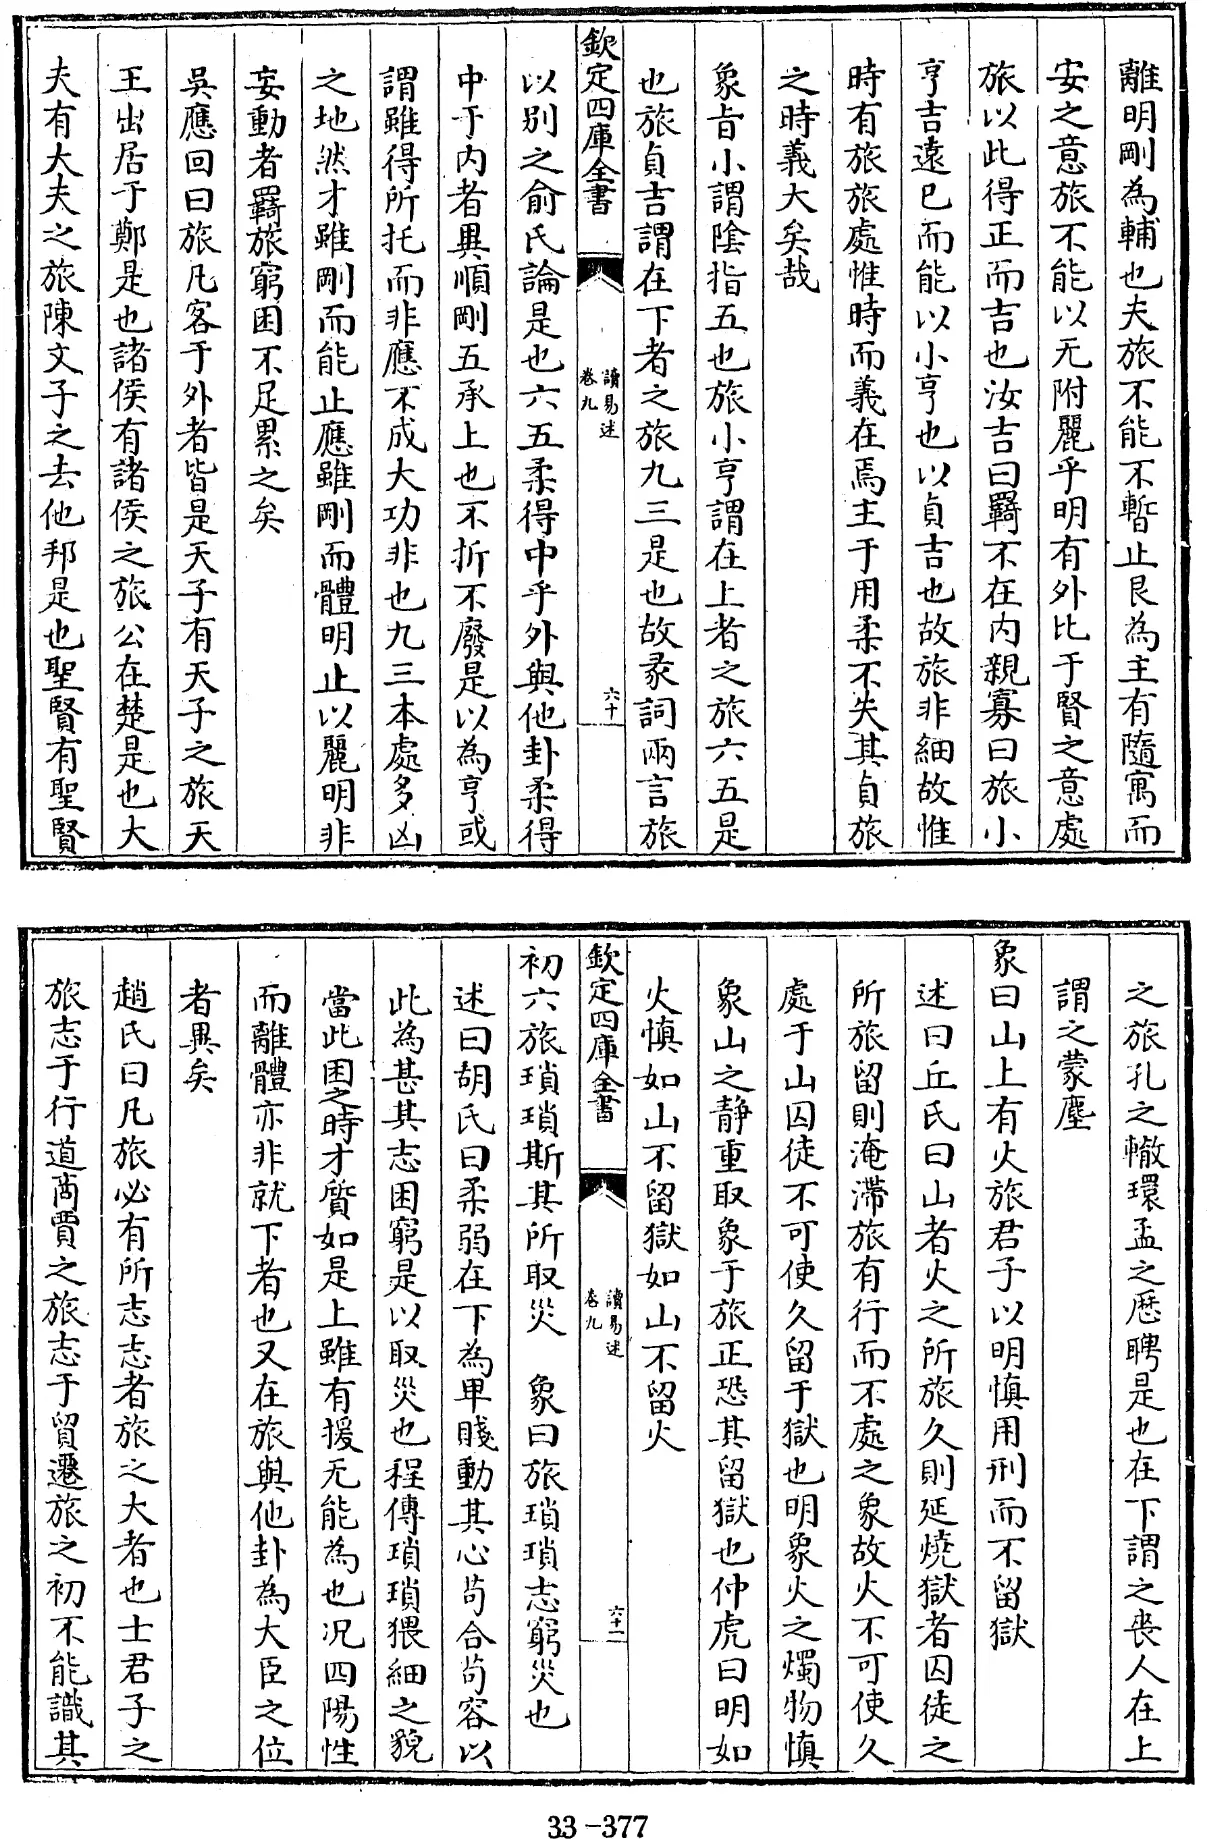 離明剛為輔也夫旅不能不暫止艮為主有隨寓而
安之意旅不能以无附麗乎明有外比于賢之意處
旅以此得正而吉也汝吉曰羇不在内親寡曰旅小
亨吉遠已而能以小亨也以貞吉也故旅非細故惟
時有旅旅處惟時而義在焉主于用柔不失其貞旅
之時義大矣哉
彖旨小謂陰指五也旅小亨謂在上者之旅六五是
也旅貞吉謂在下者之旅九三是也故彖詞兩言旅
欽定四庫全書
讀易述
卷九
六十
以别之俞氏論是也六五柔得中乎外與他卦柔得
中于内者異順剛五承上也不折不廢是以為亨或
謂雖得所托而非應不成大功非也九三本處多凶
之地然才雖剛而能止應雖剛而體明止以麗明非
妄動者羇旅窮困不足累之矣
吳應回曰旅凡客于外者皆是天子有天子之旅天
王出居于鄭是也諸侯有諸侯之旅公在楚是也大
夫有大夫之旅陳文子之去他邦是也聖賢有聖賢
之旅孔之轍環孟之歴聘是也在下謂之喪人在上
謂之蒙塵
象曰山上有火旅君子以明慎用刑而不留獄
述曰丘氏曰山者火之所旅久則延燒獄者囚徒之
所旅留則淹滯旅有行而不處之象故火不可使久
處于山囚徒不可使久留于獄也明象火之燭物慎
象山之静重取象于旅正恐其留獄也仲虎曰明如
火慎如山不留獄如山不留火
欽定四庫全書
讀易述
卷九
六十一
初六旅瑣瑣斯其所取災　象曰旅瑣瑣志窮災也
述曰胡氏曰柔弱在下為卑賤動其心苟合苟容以
此為甚其志困窮是以取災也程傳瑣瑣猥細之貌
當此困之時才質如是上雖有援无能為也况四陽性
而離體亦非就下者也又在旅與他卦為大臣之位
者異矣
趙氏曰凡旅必有所志志者旅之大者也士君子之
旅志于行道商賈之旅志于貿遷旅之初不能識其
33-377